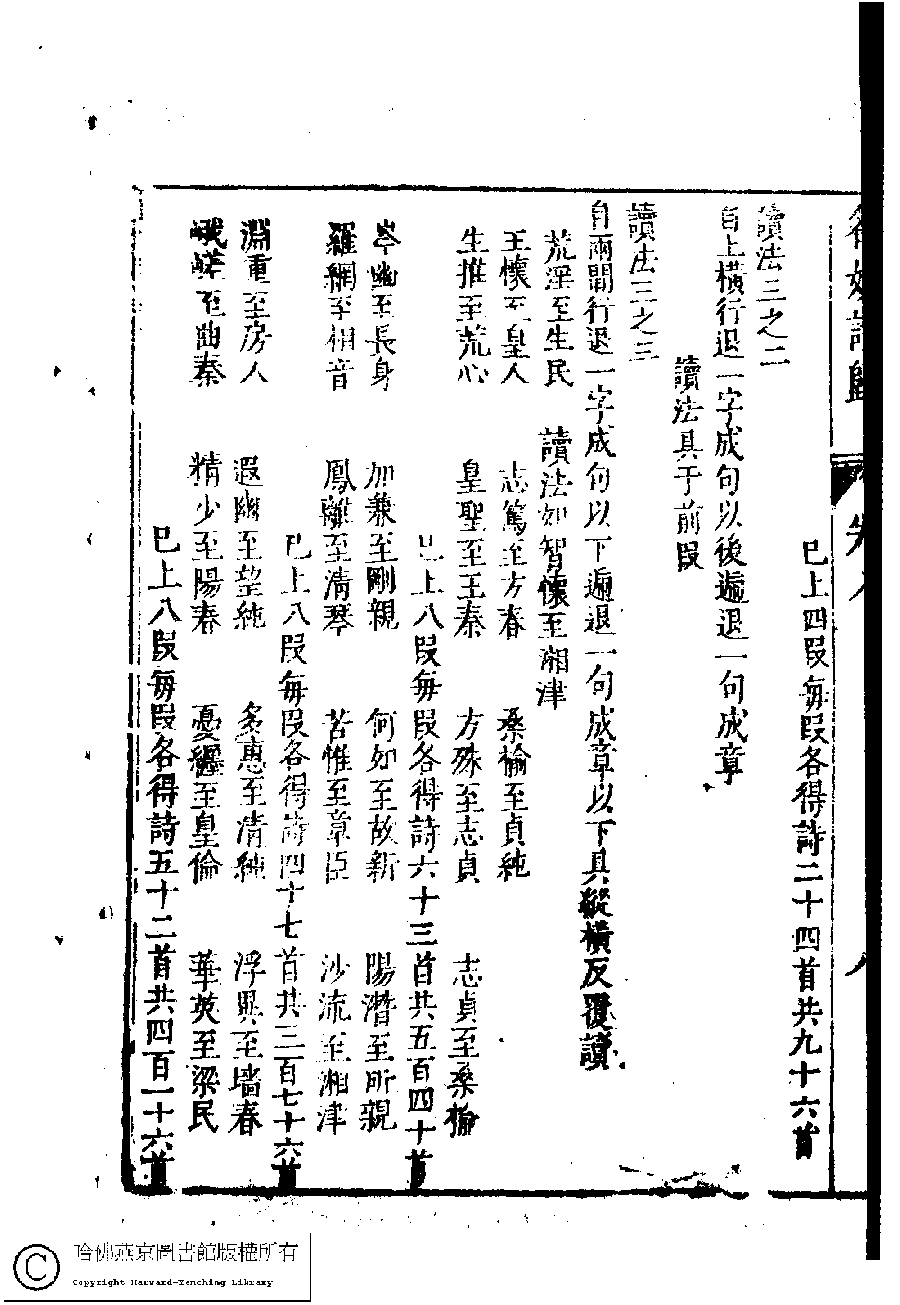 已上四段每段各得詩二十四首共九十六首
讀法三之二
自上橫行退一字成句以後遞退一句成章
讀法具于前段
讀法三之三
自兩間行退一字成句以下遞退一句成章以下具縱橫反覆讀
荒淫至生民 讀法如智懷至湘津
王懷至皇人 志篤至方春 桑榆至貞純
生推至荒心 皇聖至王秦 方殊至志貞 志貞至桑榆
已上八段每段各得詩六十三首共五百四十首
岑幽至長身 加兼至剛親 何如至故新 陽潛至所親
羅網至相音 鳳離至清琴 苦惟至章臣 沙流至湘津
已上八段每段各得詩四十七首共三百七十六首
淵重至房人 遐幽至望純 多惠至清純 浮異至墻春
峨嵯至曲秦 精少至陽春 憂纏至皇倫 華英至梁民
已上八段每段各得詩五十二首共四百一十六首
哈佛燕京圖書館版權所有
Copyright Harvard-Yenching Library